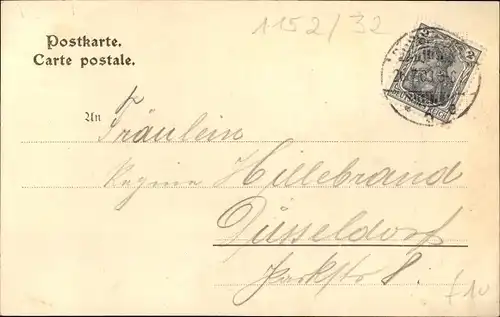 1152/32
Postkarte.
Carte postale.
An
Fräulein
Regine Hillebrand
Düsseldorf
Parkstr 8.